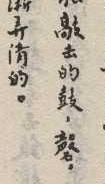 能敲击的鼓，磬，
渐弄清的。